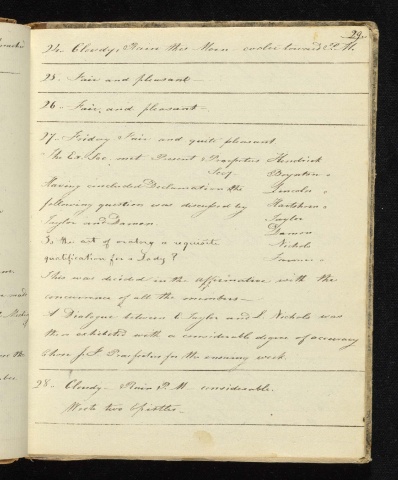 29.
24. Cloudy. Rain this Morn cooler toward P. M.
25. Fair and pleasant—
26. Fair, and pleasant—
27. Friday Fair and quite pleasant
The Ex. Soc. met Present Praefectus Kendrick
Secy. Boynton
Having concluded Declamation the Lincoln
following question was discussed by
Taylor and Damon. Taylor
Damon
Is the art of oratory a requisite Nichols
qualification for a Lady?
This was decided in the affirmative with the
concurrence of all the members—
A Dialogue between C Taylor and S. Nichols was
then exhibited with a considerable degree of accuracy
Chose J. F Praefectus for the ensuing week.
28. Cloudy— Rain P. M considerable.
Wrote two Epistles—